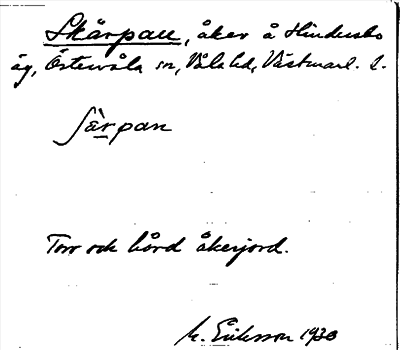 Skärpan, åker å Hindersbo
äg, Östervåla sn, Våla hd, Västmanl. l.
ʃä̀rpan
Torr och hård åkerjord.
M. Eriksson 1930